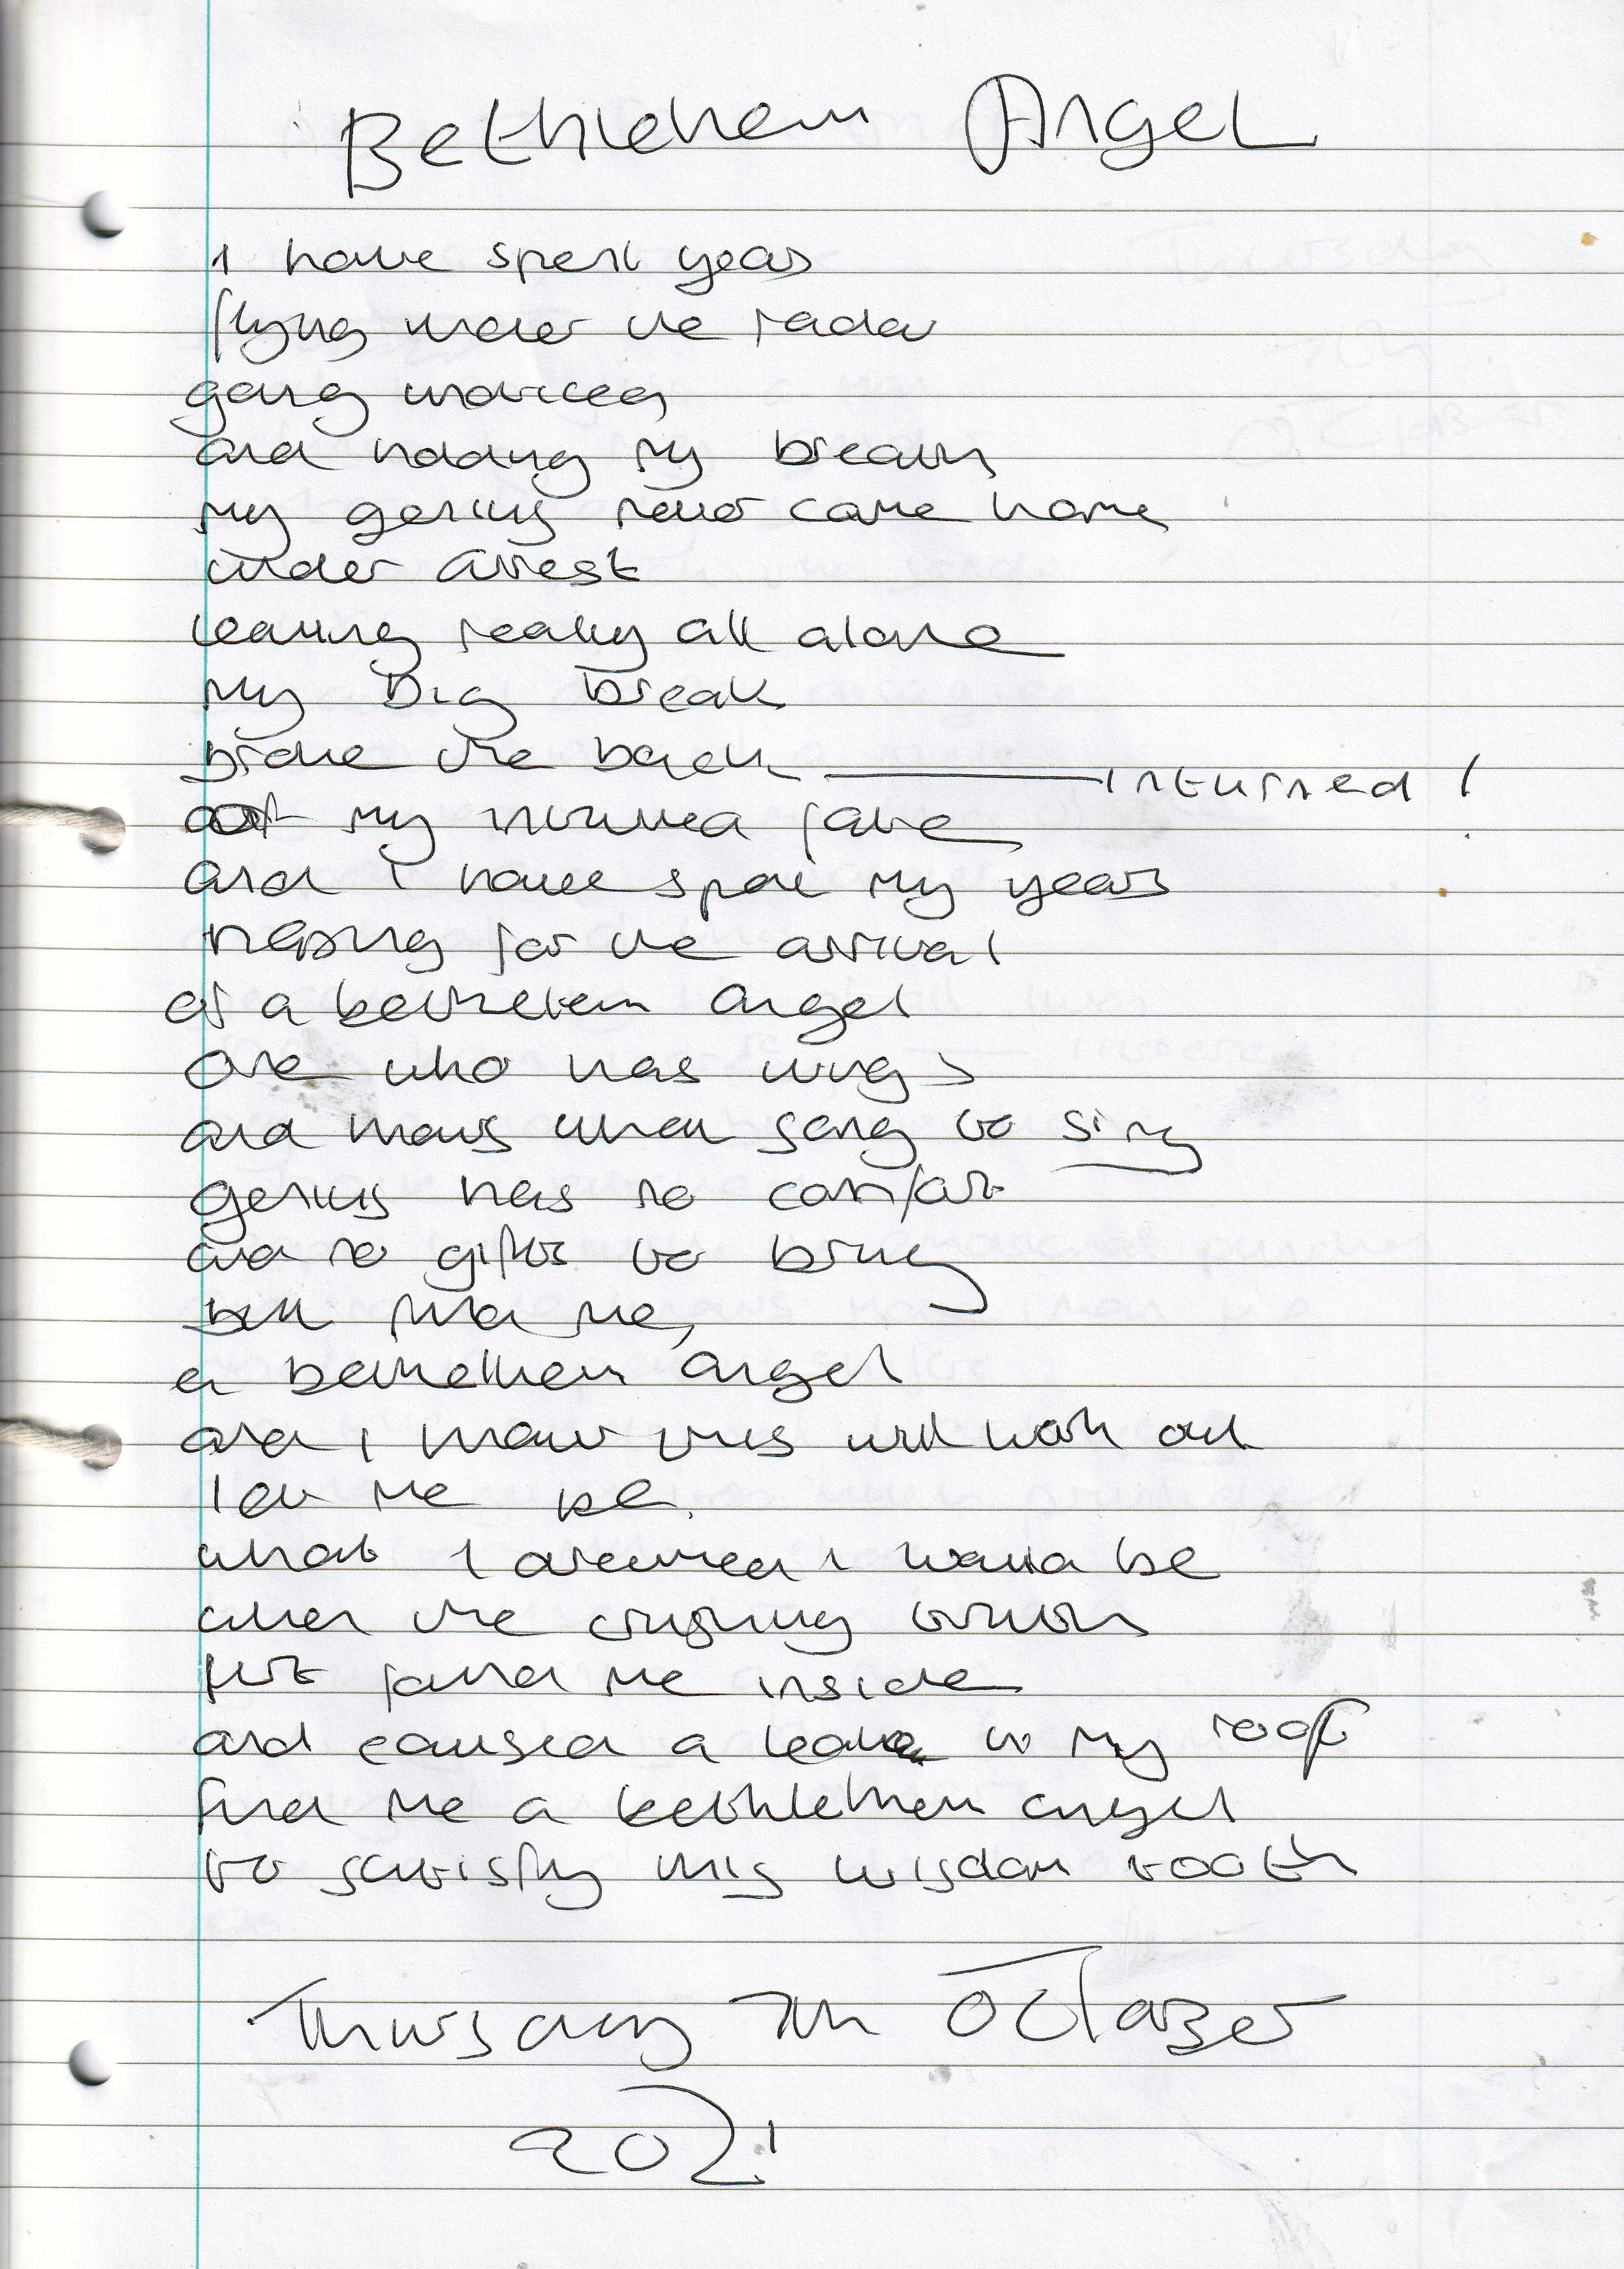 Bethlehem Angel
I have spent years
flying under the radar
going unnoticed
and holding my breath
my genius never came home
under arrest
leaving really all alone
my big break
broke the back
of my inturned fate
inturned!
and I have spent my years
hoping for the arrival
of a bethlehem angel
one who has wings
and knows what song to sing
genius has no comfort
and no gifts to bring
but find me,
a bethlehem angel
and I know this will work out
let me be
what I dreamed I wanna be
when the crushing
first found me inside
and caused a leak in my roof
find me a bethlehem angel
to satisfy this wisdom tooth
Thursday 7th October
2021